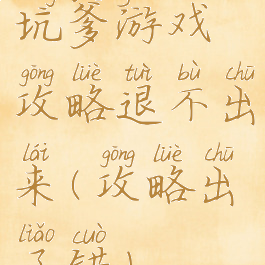 坑爹游戏
gōng lüè tuì bù chū
攻略退不出
lái gōng lüè chū
来（攻略出
liǎo cuò
了错）